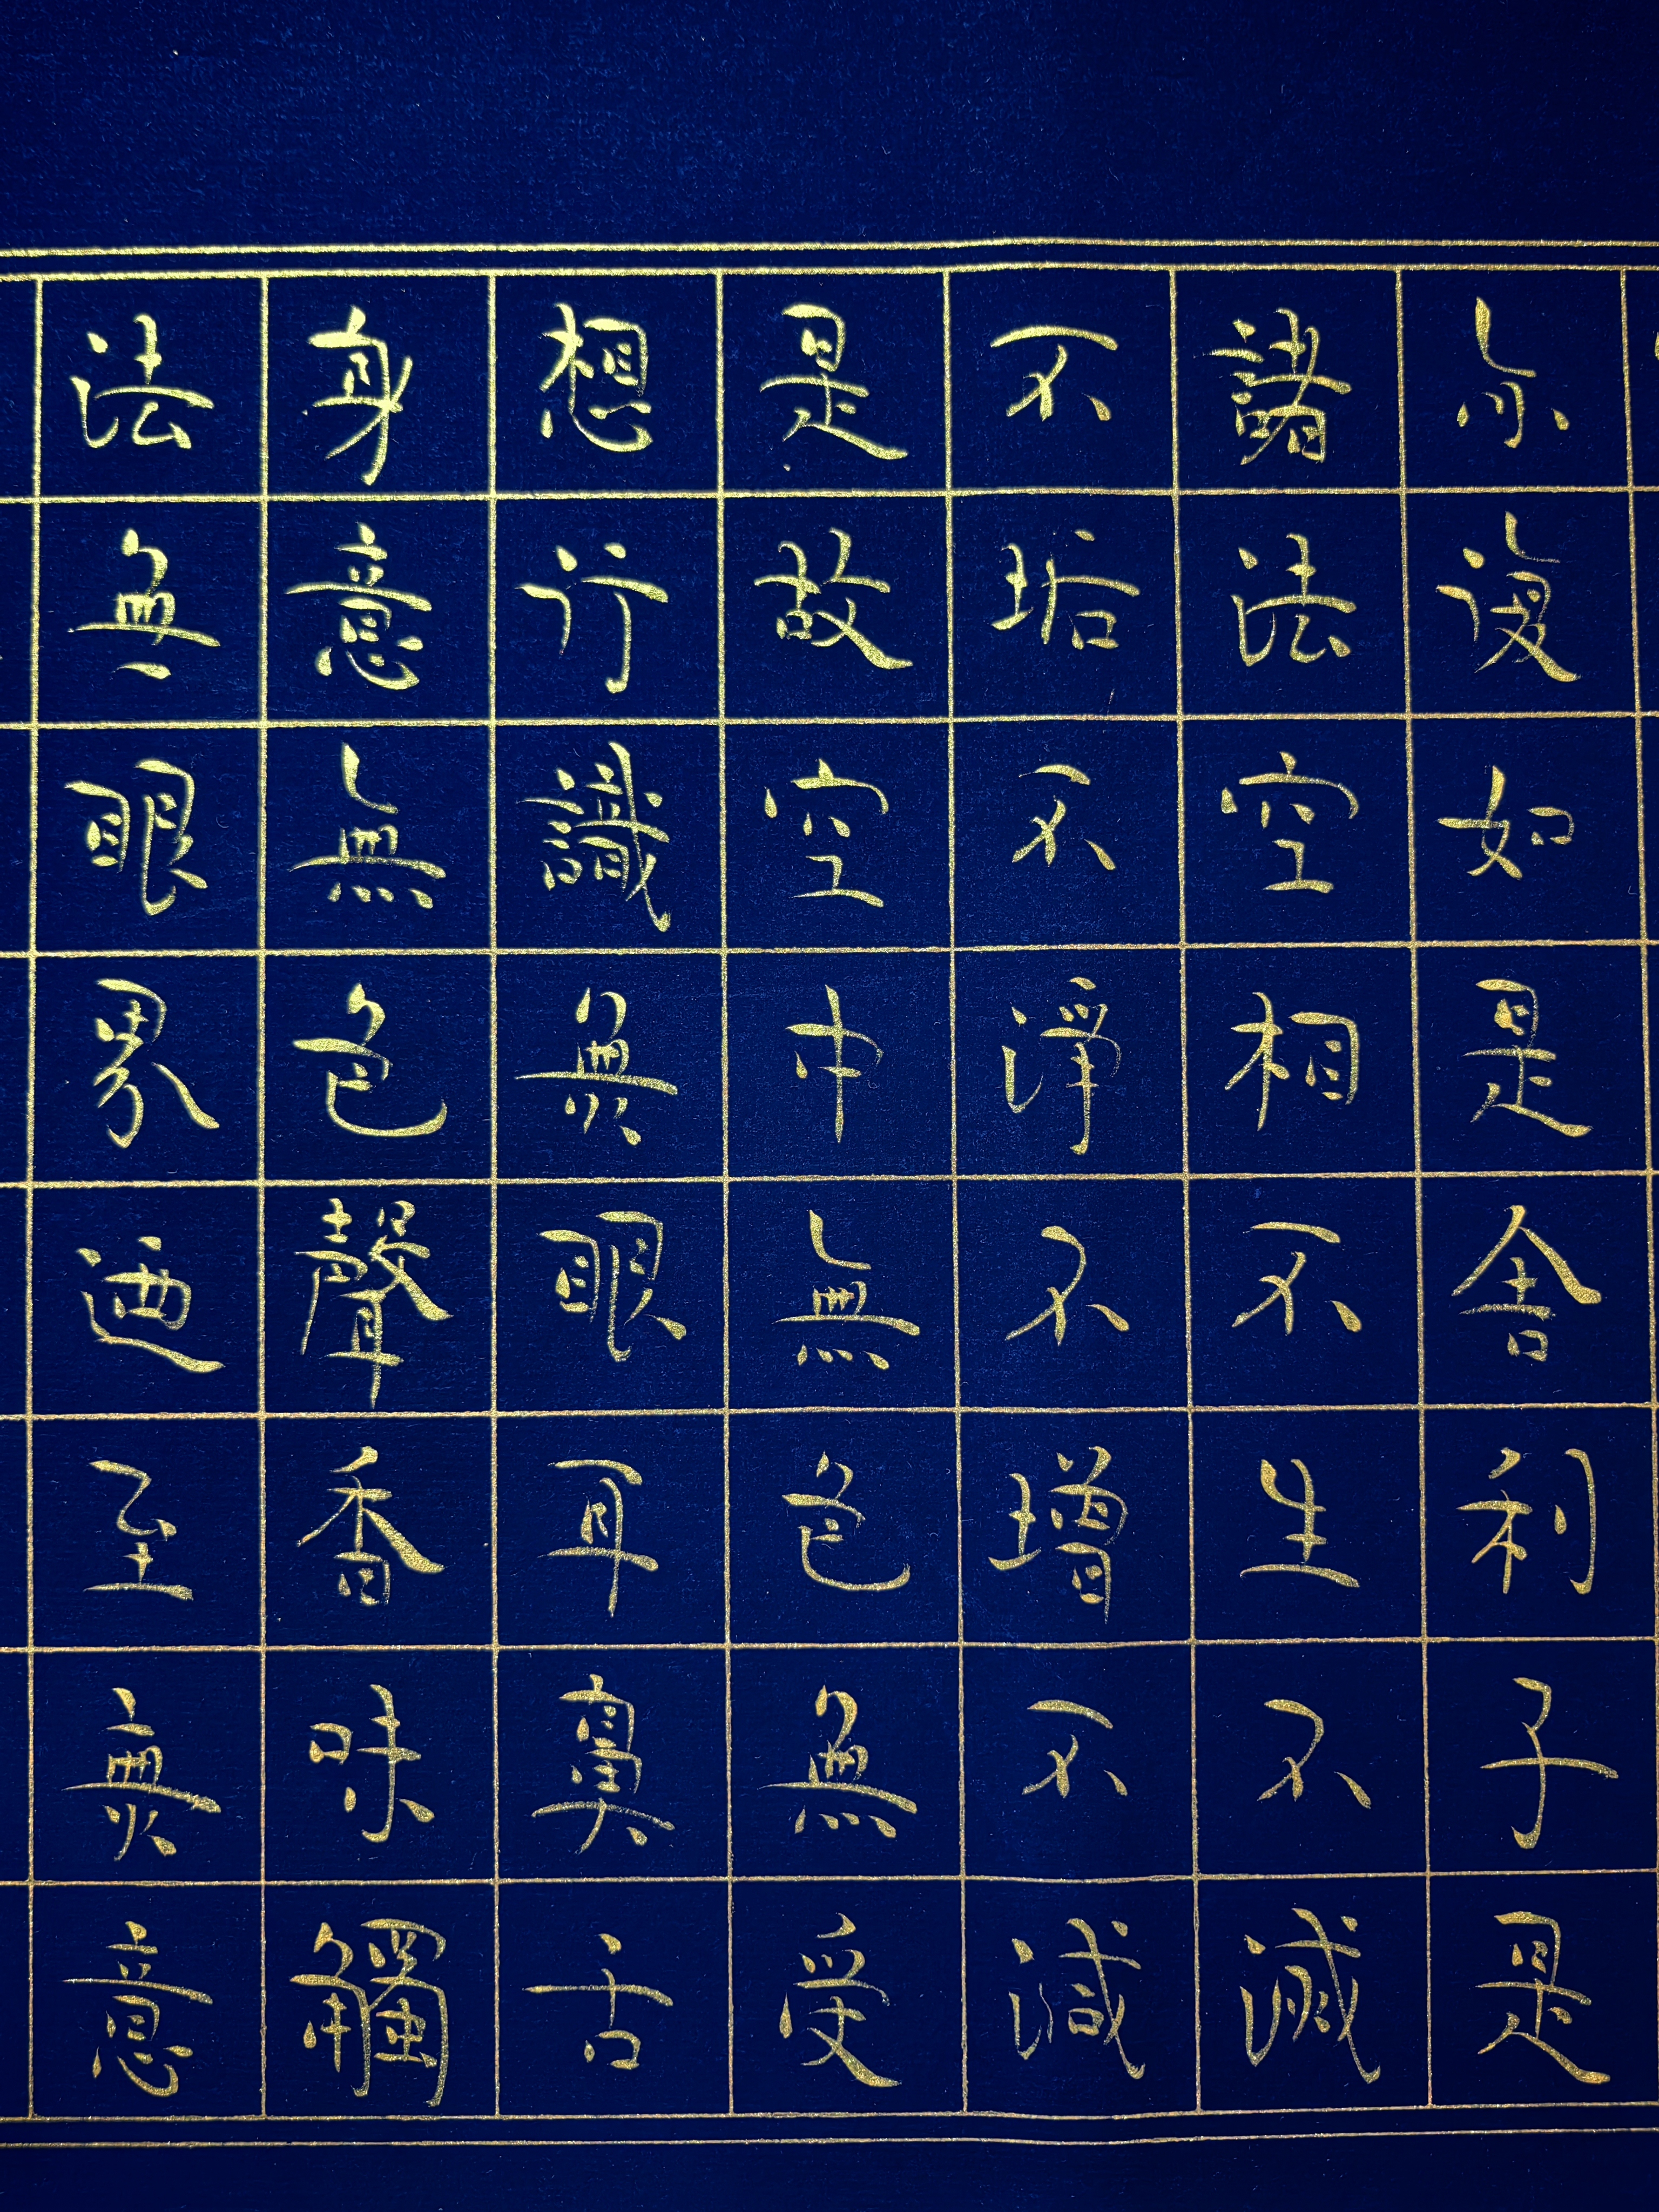 亦復如是舍利子是
諸法空相不生不滅
不垢不淨不增不減
是故空中無色無受
想行識無眼耳鼻舌
身意無色聲香味觸
法無眼界迺至無意